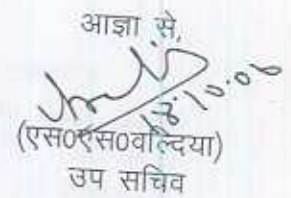 आज्ञा से,
18.10.06
(एस०एस०वल्दिया)
उप सचिव